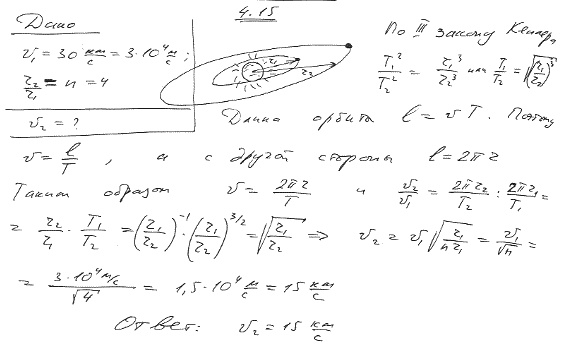 4.15
Дано
v₁ = 30 км/с = 3·10⁴ м/с;
r₂/r₁ = n = 4
v₂ = ?
r₁
r₂
По III закону Кеплера
T₁²/T₂² = r₁³/r₂³ или T₁/T₂ = √(r₁/r₂)³
Длина орбиты l = vT. Поэтому
v = l/T, а с другой стороны l = 2πr
Таким образом v = 2πr/T и v₂/v₁ = 2πr₂/T₂ : 2πr₁/T₁ =
= r₂/r₁ · T₁/T₂ = (r₁/r₂)⁻¹·(r₁/r₂)^(3/2) = √(r₁/r₂) ⇒ v₂ = v₁√(r₁/(n r₁)) = v₁/√n =
= 3·10⁴ м/с / √4 = 1,5·10⁴ м/с = 15 км/с
Ответ: v₂ = 15 км/с